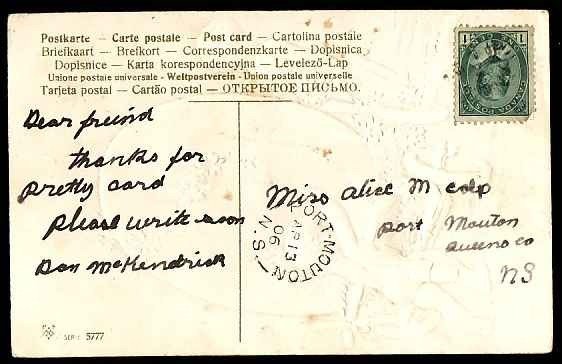 Postkarte – Carte postale – Post card – Cartolina postale
Briefkaart - Brefkort - Correspondenzkarte - Dopisnica
Dopisnice - Karta korespondencyjna - Levelező-Lap
Unione postale universale - Weltpostverein - Union postale universelle
Tarjeta postal – Cartão postal – ОТКРЫТОЕ ПИСЬМО.
Dear freind
thanks for
pretty card
please write soon
Dan McKendrick
SER: 5777
1 1
Miss Alice M
Port Mouton
Queens co
NS
PORT-MOUTON
13
06
N.S.